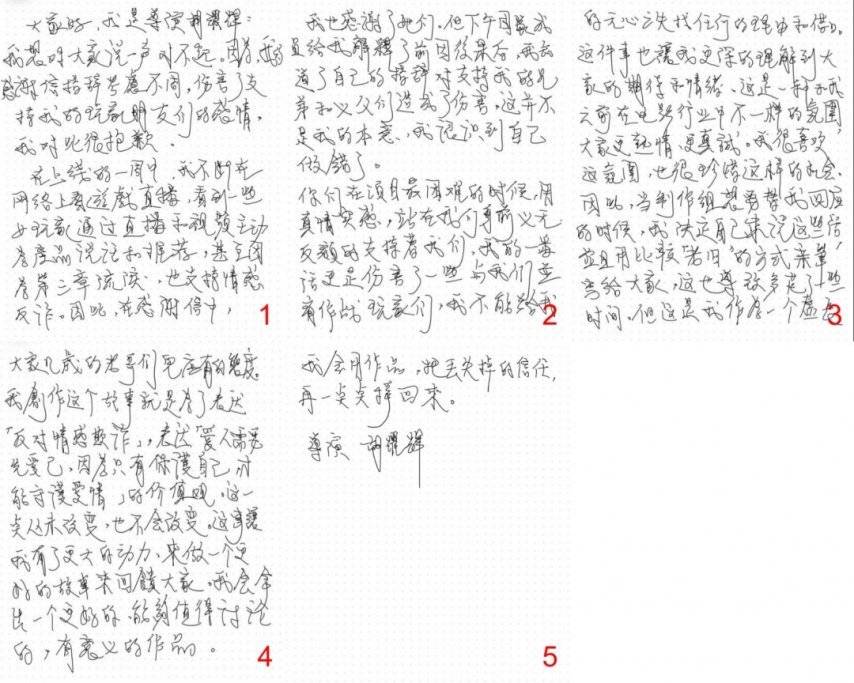 大家好，我是導演胡耀輝：
我想对大家说一声对不起。因為我的
感謝信措辞考慮不周，伤害了支
持我的玩家朋友们的感情，
我对此很抱歉。
在上线的一周中，我不断在
网络上看遊戲直播，看到一些
女玩家通过直播和视频主动
為產品说话和推荐，甚至因
為第三章流淚，也支持情感
反诈。因此，在感謝信中，
1
我也感謝了她们。但下午团队成
員給我解釋了前因後果后，我知
道了自己的措辞对支持我的兄
弟和义父们造成了伤害，这并不
是我的本意，我很识到自己
做錯了。
你们在项目最困难的时候，用
真情实感，站在我们身前义无
反顾的支持着我们，我的一番
话更是伤害了一些与我们並
肩作战玩家们，我不能給我
2
的无心之失找任何的理由和借口。
这件事也讓我更深的理解到大
家的期待和情绪。这是一种和我
之前在电影行业中不一样的氛圍，
大家更热情、更真誠。我很喜欢
这氛圍，也很珍惜这样的机会。
因此，当制作组想要替我回应
的时候，我决定自己来说这些话，
並且用比較“老旧”的方式，亲筆
寫給大家，这也導致多花了一些
时间。但这是我作為一个
3
大家几歲的老哥们兒应有的態度。
我創作这个故事就是為了表达
「反对情感欺诈」，表达「爱人需要
先爱己，因為只有保護自己，才
能守護愛情」的价值观。这一
点从未改变，也不会改变。这件事讓
我有了更大的动力，来做一个更
好的故事来回饋大家。我会拿
出一个更好的、能夠值得讨论
的，有意义的作品。
4
我会用作品，把丟失掉的信任，
再一点点掙回来。
導演 胡耀輝
5